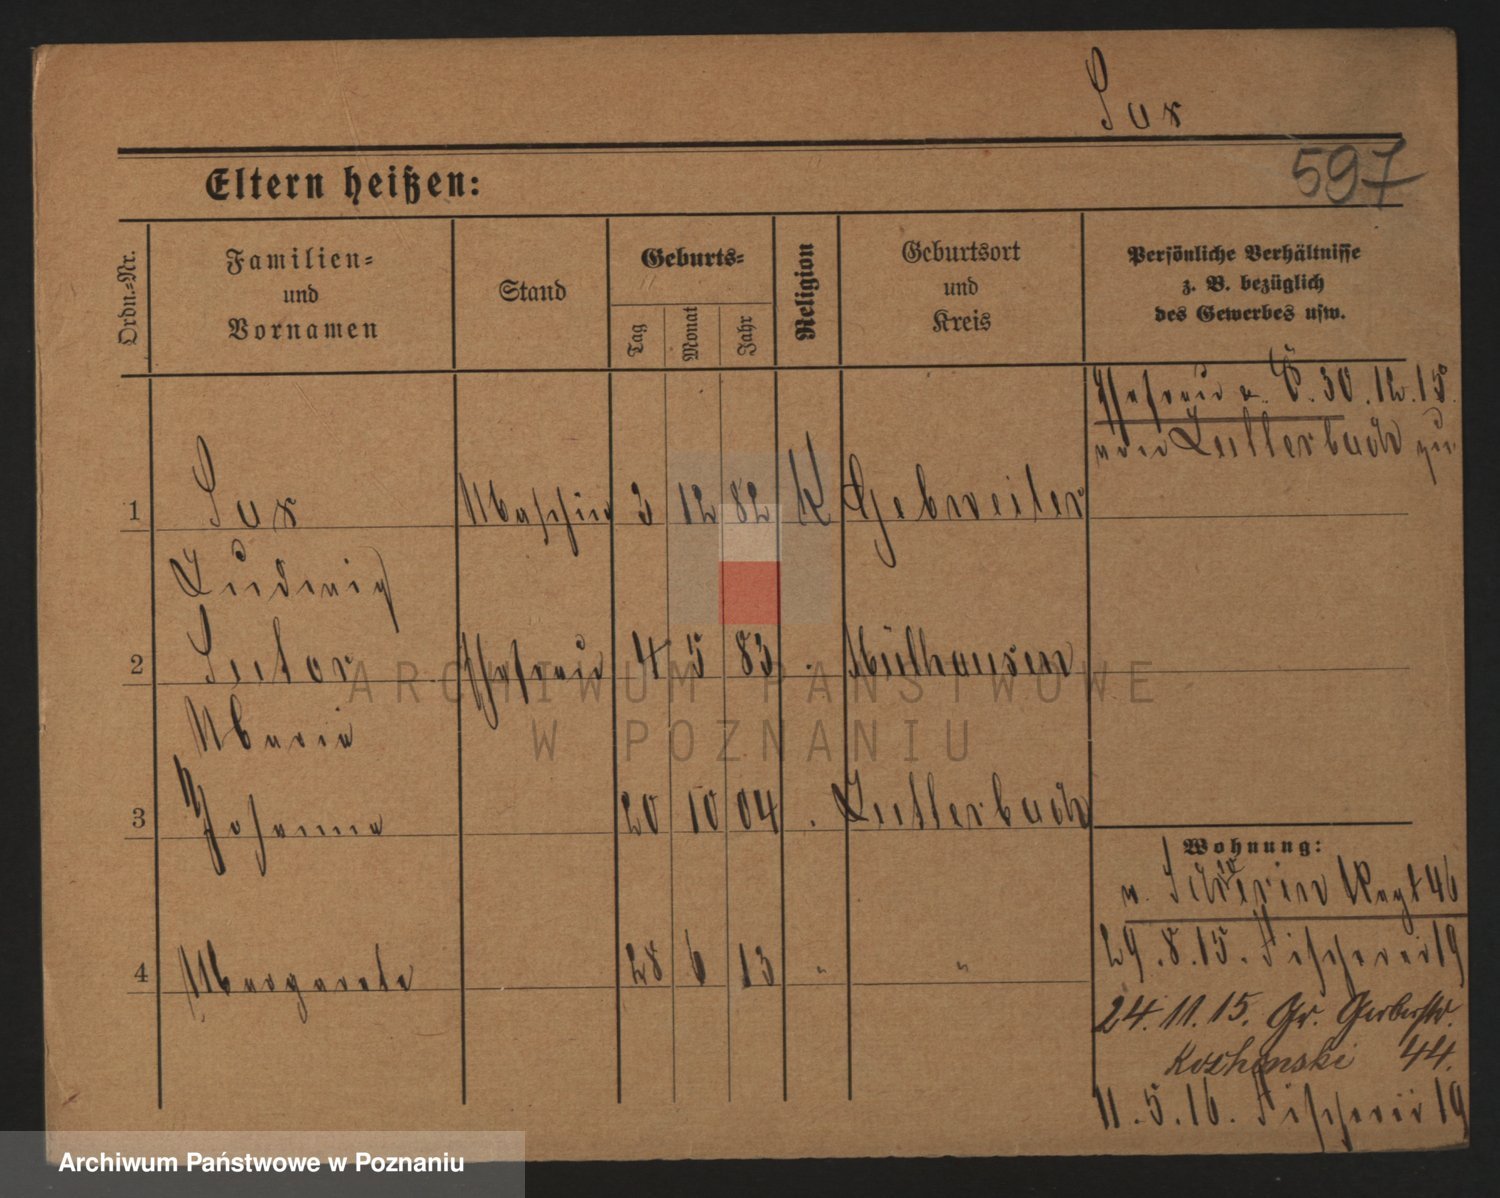 Sux
597
Eltern heißen:
Ordn.-Nr.
Familien-
und
Vornamen
Stand
Geburts-
Tag
Monat
Jahr
Religion
Geburtsort
und
Kreis
Persönliche Verhältnisse
z. B. bezüglich
des Gewerbes usw.
Ehefrau u. 30.12.15.
von Lutterbach zu
1 Sux 3 12 82 K Gebweiler
Ludwig
2 Sutor Ehefrau 4 5 83 Mülhausen
Maria
3 Johanna 20 10 04 Lutterbach
Wohnung:
Regt 46
29.8.15. Fischerei 19
4 Margarete 28 6 13 " "
24.11.15. Gr. Gerberstr.
44.
11.5.16. Fischerei 19
ARCHIWUM PAŃSTWOWE
W POZNANIU
Archiwum Państwowe w Poznaniu